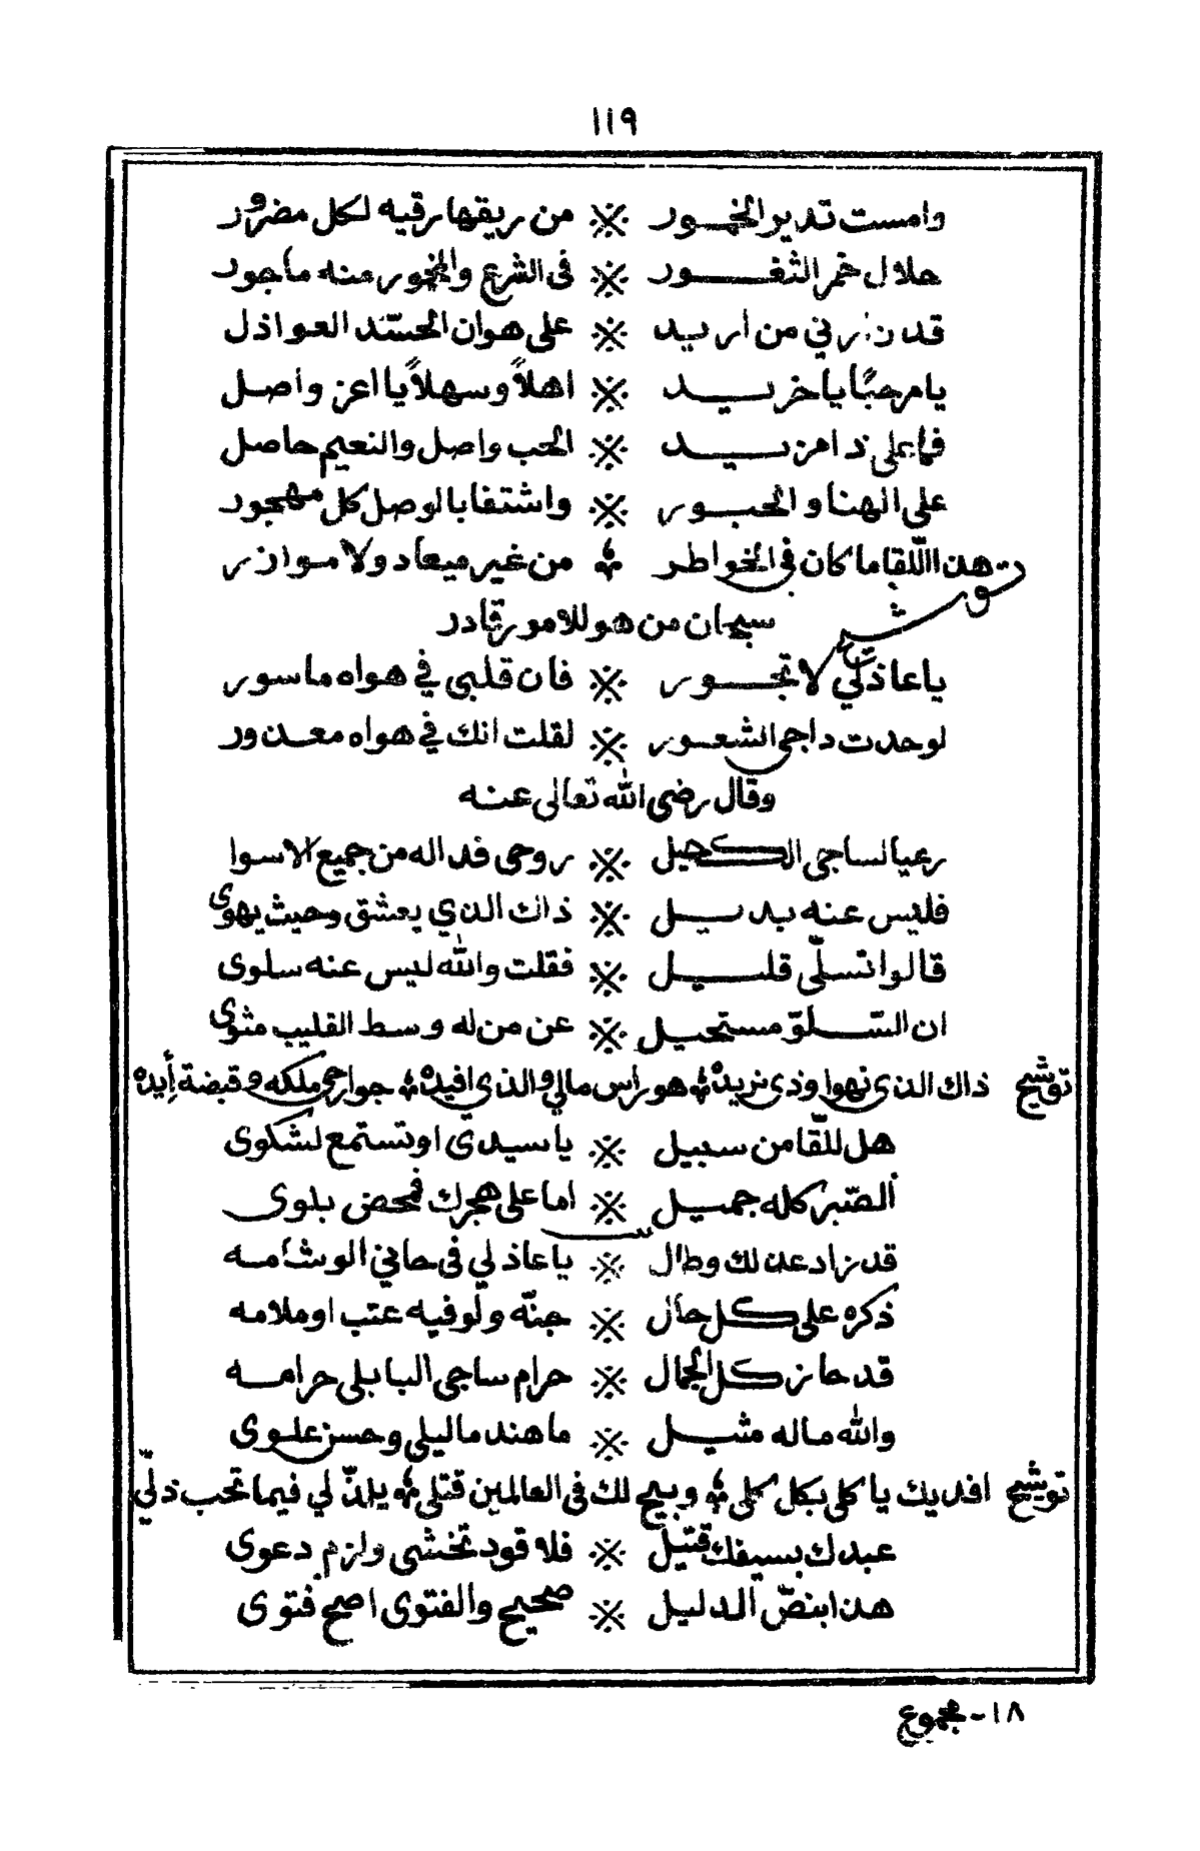 ١١٩
وامست تدير الخمور ※ من ريقها رقيه لكل مضرور
حلال خمر الثغور ※ في الشرع والمخمور منه ماجور
قد زارني من اريد ※ على هوان الحسّد العواذل
يا مرحبًا يا خريد ※ اهلاً وسهلاً يا اعز واصل
فما على ذا مزيد ※ الحب واصل والنعيم حاصل
على الهنا والحبور ※ واشتفا بالوصل كل مهجور
توشيح هذا اللقا ما كان في الخواطر ؞ من غير ميعاد ولا موازر
سبحان من هو للامور قادر
يا عاذلي لا تجور ※ فان قلبي في هواه ماسور
لو حدت داجي الشعور ※ لقلت انك في هواه معذور
وقال رضى الله تعالى عنه
رعيا لساجي الكحيل ※ روحى فدا له من جميع الاسوا
فليس عنه بديل ※ ذاك الذي يعشق وحيث يهوى
قالوا تسلّى قليل ※ فقلت والله ليس عنه سلوى
ان السّلوّ مستحيل ※ عن من له وسط القليب مثوى
توشيح ذاك الذى نهوا وذى نريده ؞ هو راس مالي والذى افيده ؞ جوارحى ملكه وقبضة أيده
هل للّقا من سبيل ※ يا سيدى او تستمع لشكوى
الصّبر كله جميل ※ اما على هجرك فمحض بلوى
قد زاد عذلك وطال ※ يا عاذلي في حالي الوشامه
ذكره على كل حال ※ جنّه ولو فيه عتب او ملامه
قد حاز كل الجمال ※ حرام ساجي البابلى حرامه
والله ماله مثيل ※ ما هند ما ليلى وحسن علوى
توشيح افديك يا كلى بكل كلى ؞ وبيح لك في العالمين قتلى ؞ يلذّ لي فيما تحب ذلّي
عبدك بسيفك قتيل ※ فلا قود تخشى ولازم دعوى
هذا بنصّ الدليل ※ صحيح والفتوى اصح فتوى
١٨- مجموع